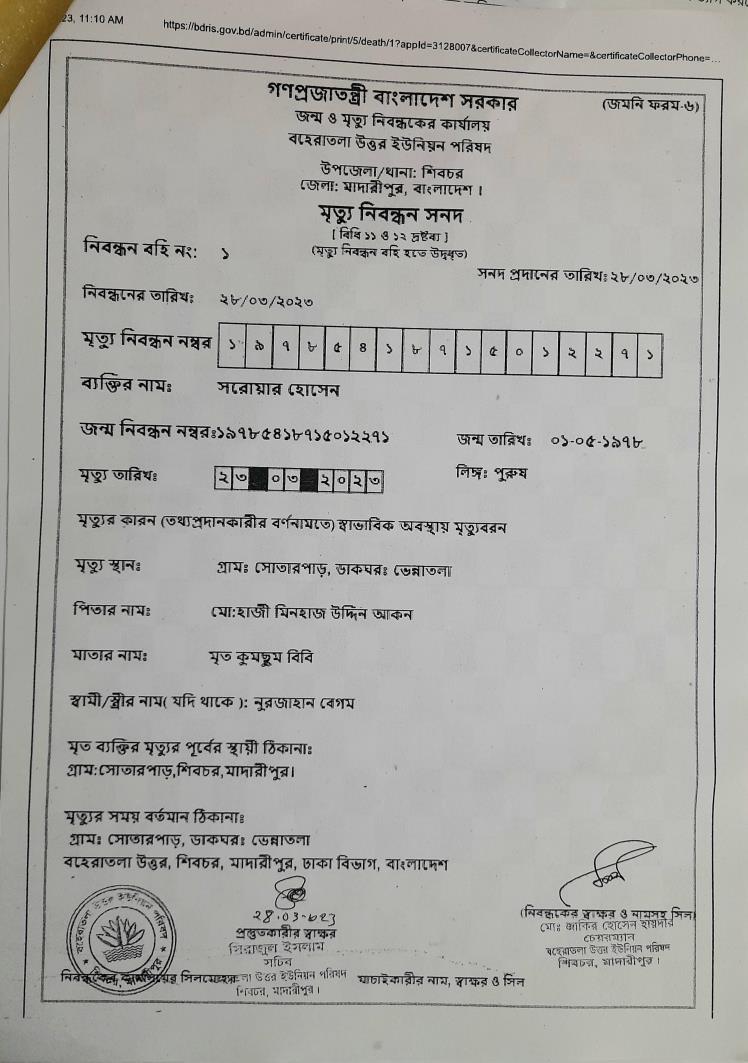 23, 11:10 AM
https://bdris.gov.bd/admin/certificate/print/5/death/1?appId=3128007&certificateCollectorName=&certificateCollectorPhone=…
গণপ্রজাতন্ত্রী বাংলাদেশ সরকার
(জমনি ফরম-৬)
জন্ম ও মৃত্যু নিবন্ধকের কার্যালয়
বহেরাতলা উত্তর ইউনিয়ন পরিষদ
উপজেলা/থানা: শিবচর
জেলা: মাদারীপুর, বাংলাদেশ ।
মৃত্যু নিবন্ধন সনদ
[ বিধি ১১ ও ১২ দ্রষ্টব্য ]
(মৃত্যু নিবন্ধন বহি হতে উদ্ধৃত)
নিবন্ধন বহি নং: ১
সনদ প্রদানের তারিখঃ ২৮/০৩/২০২৩
নিবন্ধনের তারিখঃ ২৮/০৩/২০২৩
মৃত্যু নিবন্ধন নম্বর ১ ৯ ৭ ৮ ৫ ৪ ১ ৮ ৭ ১ ৫ ০ ১ ২ ২ ৭ ১
ব্যক্তির নামঃ সরোয়ার হোসেন
জন্ম নিবন্ধন নম্বরঃ১৯৭৮৫৪১৮৭১৫০১২২৭১ জন্ম তারিখঃ ০১-০৫-১৯৭৮
মৃত্যু তারিখঃ ২৩ ০৩ ২০২৩ লিঙ্গ: পুরুষ
মৃত্যুর কারন (তথ্যপ্রদানকারীর বর্ণনামতে) স্বাভাবিক অবস্থায় মৃত্যুবরন
মৃত্যু স্থানঃ গ্রামঃ সোতারপাড়, ডাকঘরঃ ভেন্নাতলা
পিতার নামঃ মো:হাজী মিনহাজ উদ্দিন আকন
মাতার নামঃ মৃত কুমছুম বিবি
স্বামী/স্ত্রীর নাম( যদি থাকে ): নুরজাহান বেগম
মৃত ব্যক্তির মৃত্যুর পূর্বের স্থায়ী ঠিকানাঃ
গ্রাম:সোতারপাড়,শিবচর,মাদারীপুর।
মৃত্যুর সময় বর্তমান ঠিকানাঃ
গ্রামঃ সোতারপাড়, ডাকঘরঃ ভেন্নাতলা
বহেরাতলা উত্তর, শিবচর, মাদারীপুর, ঢাকা বিভাগ, বাংলাদেশ
বহেরাতলা উত্তর ইউনিয়ন পরিষদ
28.03.023
প্রস্তুতকারীর স্বাক্ষর
সচিব
উত্তর ইউনিয়ন পরিষদ
শিবচর, মাদারীপুর ।
(নিবন্ধকের স্বাক্ষর ও নামসহ সিল
মোঃ জাকির হোসেন হায়দার
চেয়ারম্যান
বহেরাতলা উত্তর ইউনিয়ন পরিষদ
শিবচর, মাদারীপুর ।
যাচাইকারীর নাম, স্বাক্ষর ও সিল